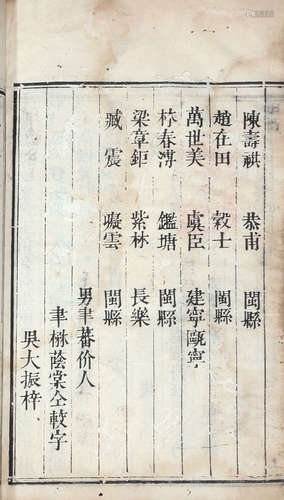 陳壽祺 恭甫 閩縣
趙在田 穀士 閩縣
萬世美 虞臣 建寧甌寧
林春溥 鑑塘 閩縣
梁章鉅 紫林 長樂
臧震 礙雲 閩縣
男聿蕃价人
聿楙蔭棠仝較字
吳大振梓